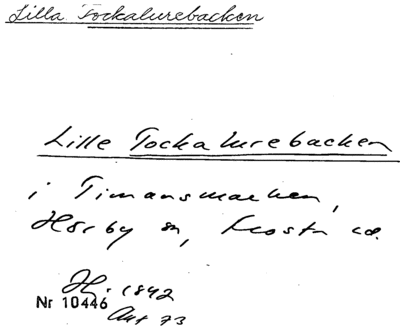 Lilla Tockalurebacken
Lille Tockalurebacken
i Timansmarken,
Hörby sn, Frosta hd.
H. 1842
Nr 10446
Akt 73